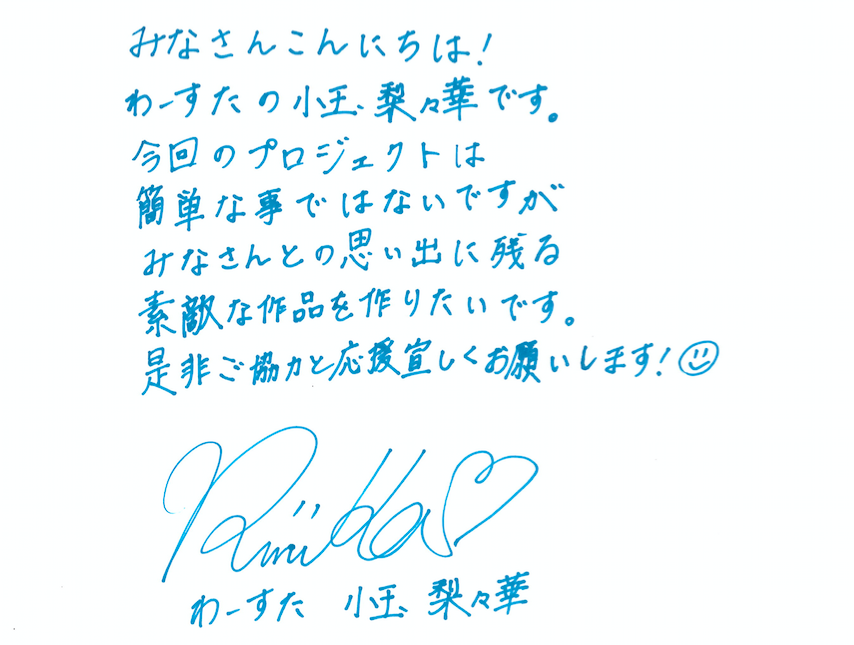 みなさんこんにちは!
わーすたの小玉梨々華です。
今回のプロジェクトは
簡単な事ではないですが
みなさんとの思い出に残る
素敵な作品を作りたいです。
是非ご協力と応援宜しくお願いします!
Ririka
わーすた 小玉梨々華